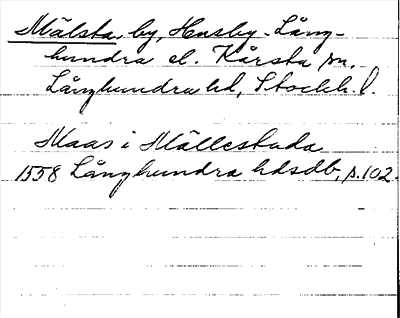 Mälsta by, Husby-Lång-
hundra el. Kårsta sn.
Långhundra hd, Stockh. l.
Maas i Mällestada
1558 Långhundra hdsdb, s. 102.